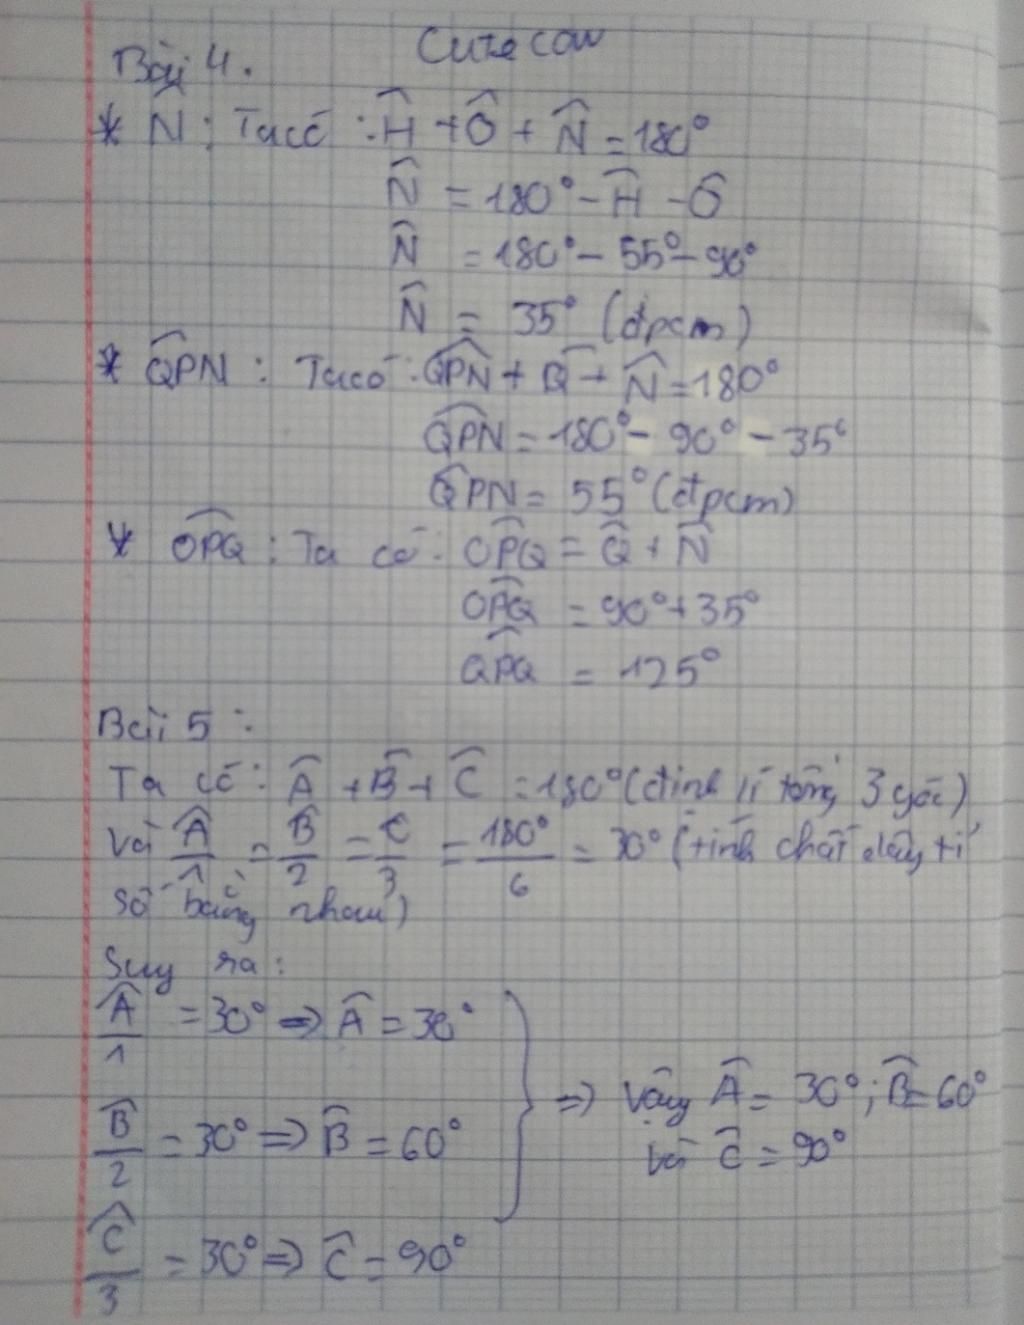 Cute cow
Bài 4.
* N̂ : Ta có : Ĥ + Ô + N̂ = 180°
N̂ = 180° - Ĥ - Ô
N̂ = 180° - 55° - 90°
N̂ = 35° (đpcm)
* QPN̂ : Ta có : QPN̂ + Q̂ + N̂ = 180°
QPN̂ = 180° - 90° - 35°
QPN̂ = 55° (đpcm)
* OPQ̂ : Ta có : OPQ̂ = Q̂ + N̂
OPQ̂ = 90° + 35°
OPQ̂ = 125°
Bài 5 :
Ta có : Â + B̂ + Ĉ = 180° (định lí tổng 3 góc)
Và Â/1 = B̂/2 = Ĉ/3 = 180°/6 = 30° (tính chất dãy tỉ
số bằng nhau)
Suy ra :
Â/1 = 30° => Â = 30°
B̂/2 = 30° => B̂ = 60°
Ĉ/3 = 30° => Ĉ = 90°
=> Vậy Â = 30° ; B̂ = 60°
và Ĉ = 90°